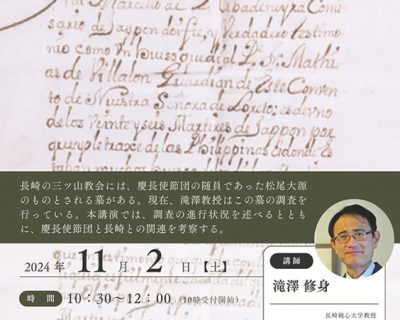 fr. Marcello de Ribadeneyra Comi
sario de Jappon doi fe, y Verdadero testimo
nio como Vn hueso que dio al P. fr. Mathi
as de Villalon Guardian de Este Conven
to de Nuestra Señora de Loreto; es de vno
de los Veinte y seis Martires de Jappon por
que yo le traxe de las Philippinas adonde es
taban muchos
長崎の三ツ山教会には、慶長使節団の随員であった松尾大源
のものとされる墓がある。現在、滝澤教授はこの墓の調査を
行っている。本講演では、調査の進行状況を述べるととも
に、慶長使節団と長崎との関連を考察する。
2024年 11月 2日【土】
時間 10:30~12:00(10時受付開始)
講師
滝澤 修身
長崎純心大学教授